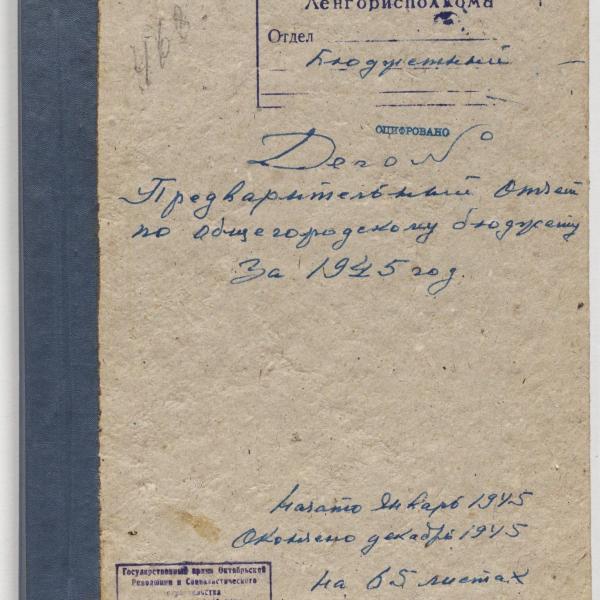 468
Ленгорисполкома
Отдел
Бюджетный
ОЦИФРОВАНО
Дело №
Предварительный отчет
по общегородскому бюджету
За 1945 год.
Начато Январь 1945
Окончено декабрь 1945
на 65 листах
Государственный архив Октябрьской
Революции и Социалистического
строительства